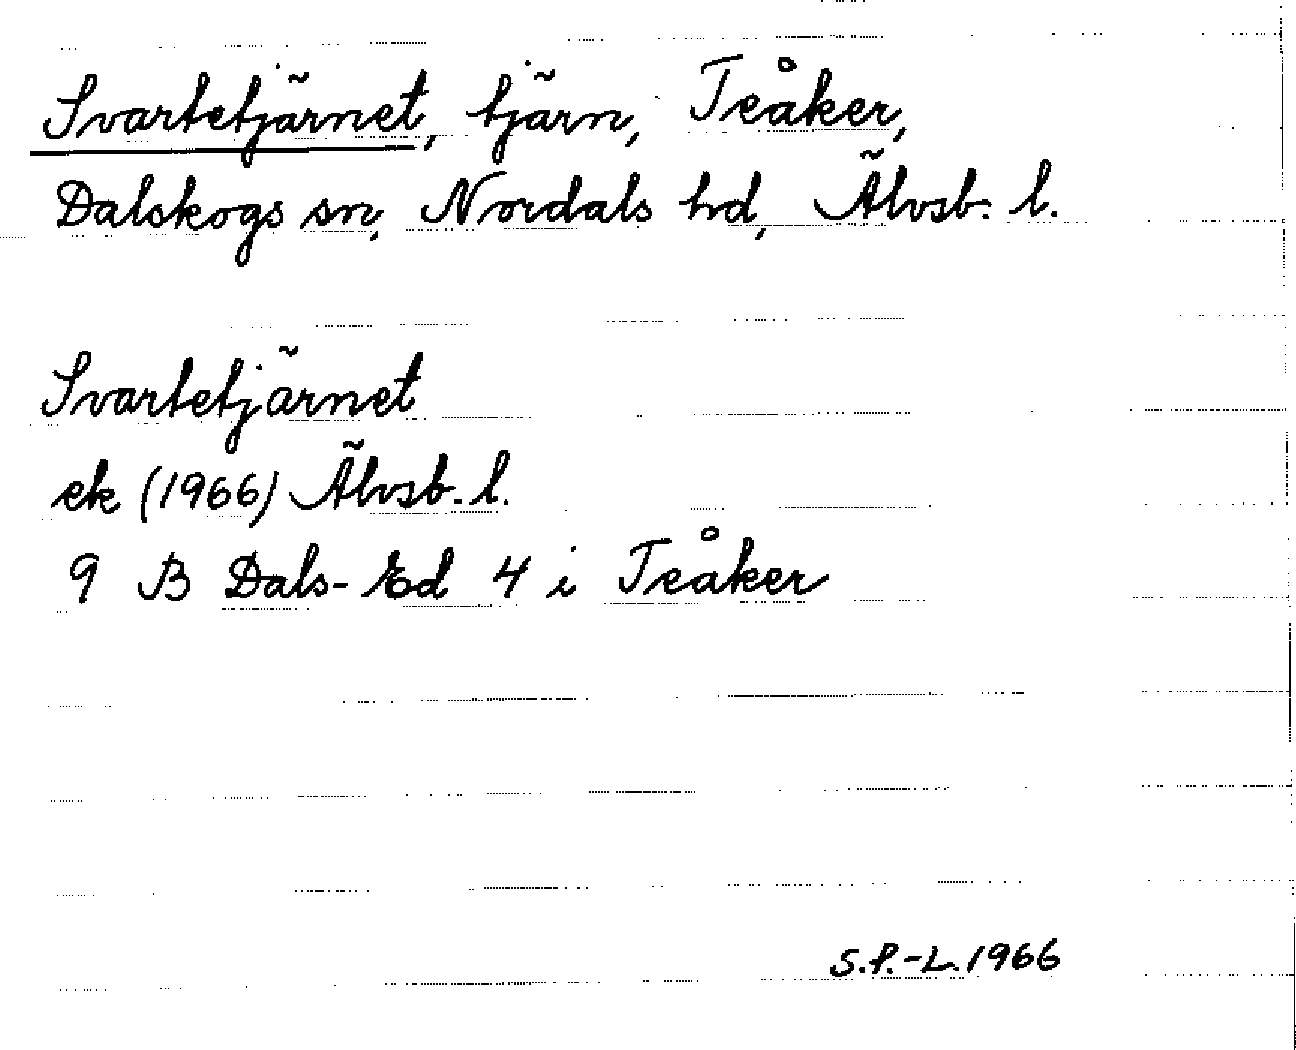 Svartetjärnet, tjärn, Teåker,
Dalskogs sn, Nordals hd, Älvsb. l.
Svartetjärnet
ek (1966) Älvsb. l.
9 B Dals-Ed 4 i Teåker
S.P.-L. 1966